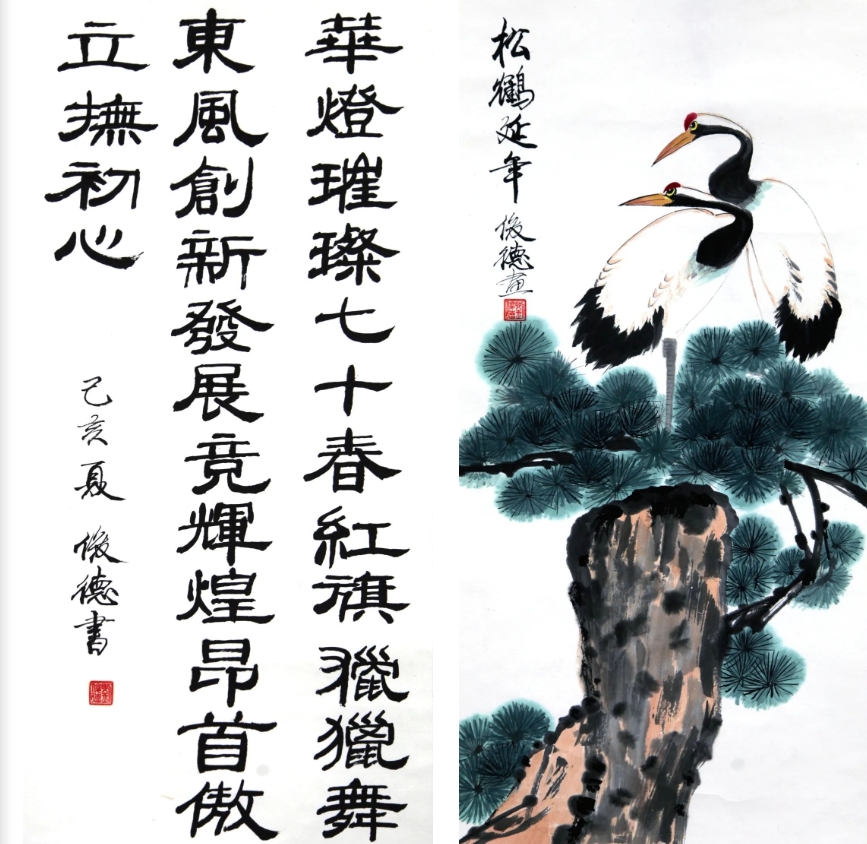 華燈璀璨七十春紅旗獵獵舞
東風創新發展竞輝煌昂首傲
立撫初心
己亥夏 俊德書
松鶴延年 俊德畫